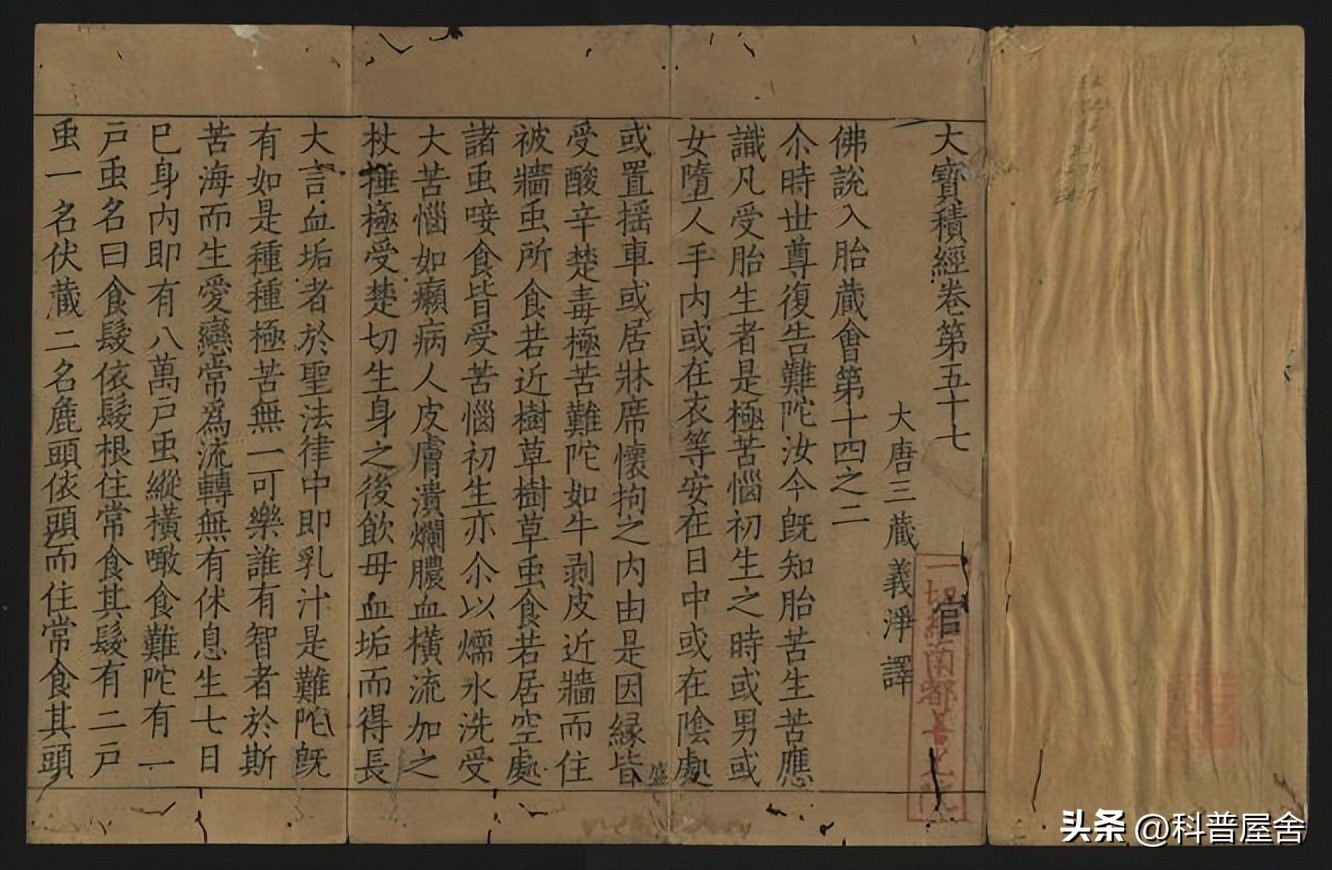 大寶積經卷第五十七
官
大唐三藏義淨譯
佛說入胎藏會第十四之二
尒時世尊復告難陀汝今旣知胎苦生苦應
識凡受胎生者是極苦惱初生之時或男或
女墮人手內或在衣等安在日中或在陰處
或置摇車或居牀席懷拘之内由是因緣皆
盛
受酸辛楚毒極苦難陀如牛剥皮近牆而住
被牆䖝所食若近樹草樹草䖝食若居空處
諸䖝唼食皆受苦惱初生亦尒以煗水洗受
大苦惱如癩病人皮膚潰爛膿血橫流加之
杖捶極受楚切生身之後飲母血垢而得長
大言血垢者於聖法律中即乳汁是難陀旣
有如是種種極苦無一可樂誰有智者於斯
苦海而生愛戀常爲流轉無有休息生七日
巳身內即有八萬戶䖝縱橫噉食難陀有一
戶䖝名曰食髮依髮根住常食其髮有二戶
䖝一名伏藏二名麁頭依頭而住常食其頭
一切經南都善光院
头条 @科普屋舍